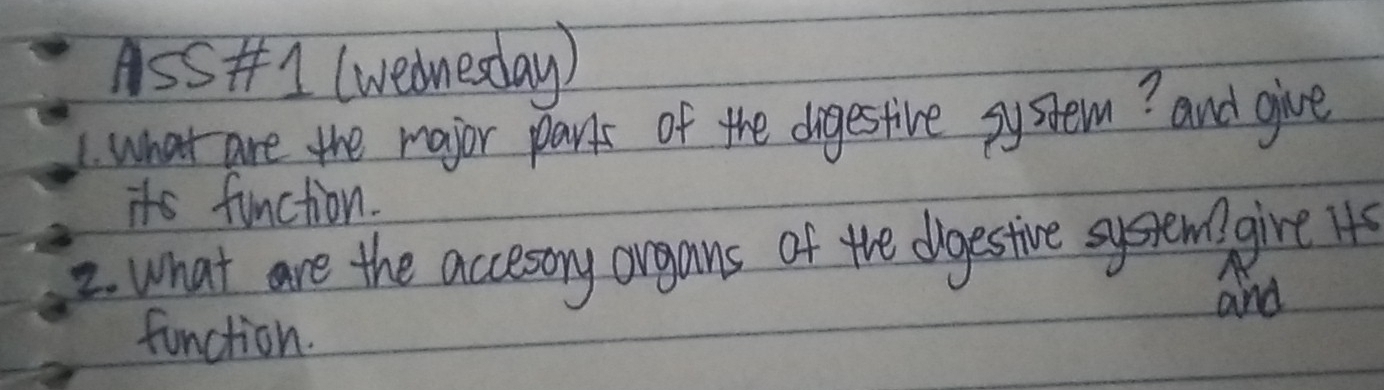 ASS#1 (Wednesday)
1. What are the major parts of the digestive system? and give
its function.
2. What are the accesory organs of the digestive system? give its
and
function.